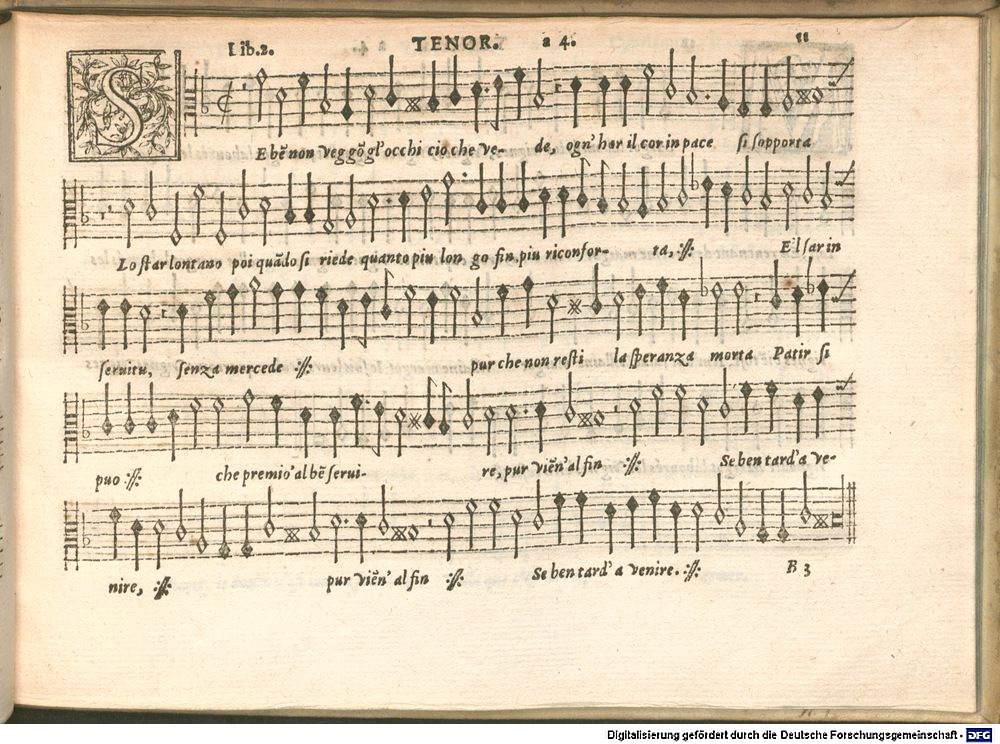 Lib.2. TENOR. a 4. 11
S
E bẽ non veggõ gl'occhi ciò che ve- de, ogn'hor il cor in pace si sopporta
Lo star lontano poi quãdo si riede quanto piu lon go fin, piu riconfor- ta, :||: El sar in
seruitu, senza mercede :||: pur che non resti la speranza morta Patir si
puo :||: che premio'al bẽ serui- re, pur viẽn'al fin :||: Se ben tard'a ve-
nire, :||: pur viẽn'al fin :||: Se ben tard'a venire. :||: B 3
Digitalisierung gefördert durch die Deutsche Forschungsgemeinschaft - DFG